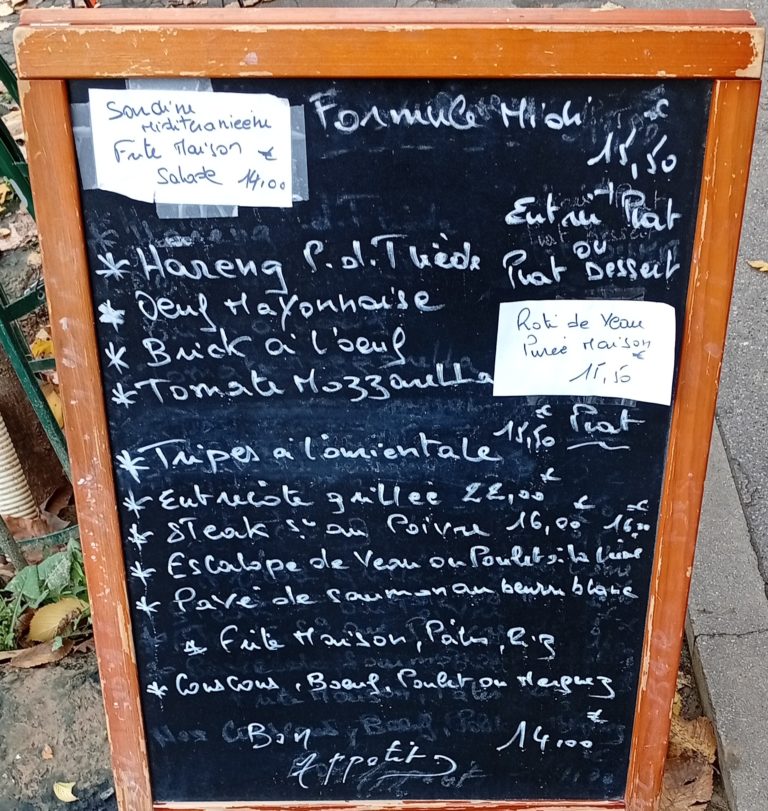 Sardine
Méditéranieéne
Frite Maison €
Salade 14,00
Formule Midi €
15,50
Entrée Plat
ou
Plat Dessert
* Hareng P.d.Tiède
* Oeuf Mayonnaise
* Brick à l'oeuf
* Tomate Mozzarella
Roti de Veau
Pureé Maison
€
15,50
15,50 € Plat
* Tripes à l'orientale
* Entrecôte grilleé 22,00 €
* Steak s.ce au Poivre 16,00 €
16,00 €
* Escalope de Veau ou Poulet à la Crème
* Pavé de saumon au beurre blanc
* Frite Maison, Pâtes, Riz
* Couscous, Boeuf, Poulet ou Merguez
Bon 14,00 €
Appetit